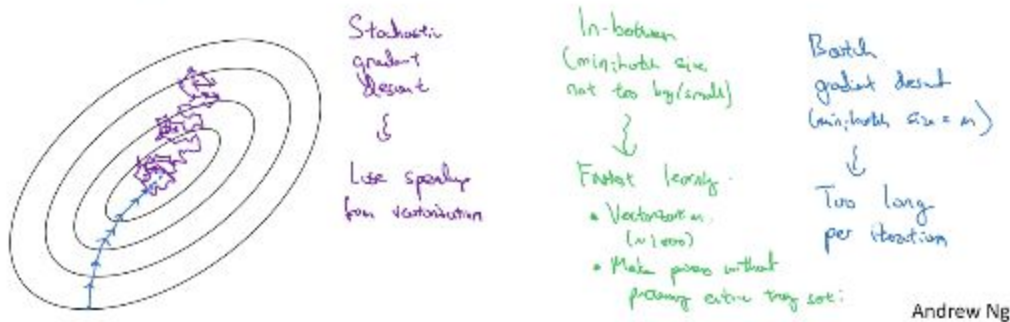 Stochastic
gradient
descent
Lose speedup
from vectorization
In-between
(minibatch size
not too big/small)
Fastest learning.
• Vectorization.
(~1000)
• Make progress without
processing entire training set.
Batch
gradient descent
(minibatch size = m)
Too long
per iteration
Andrew Ng